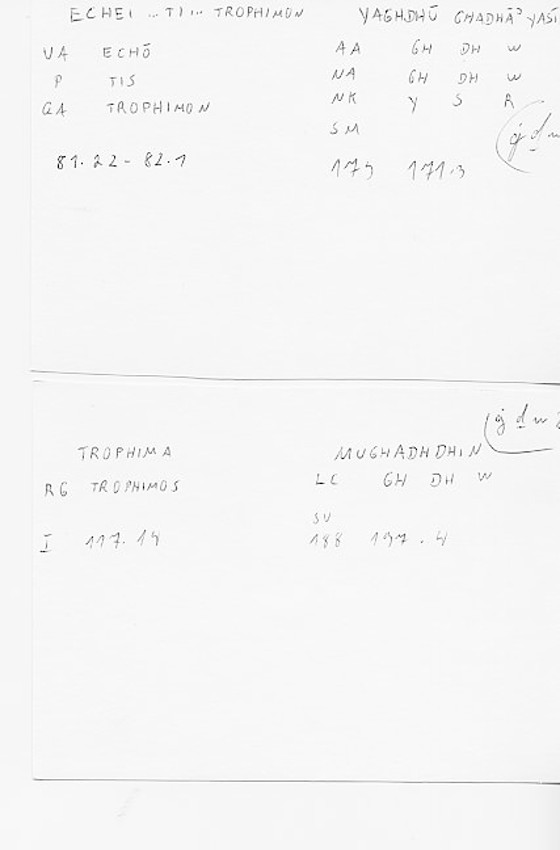 ECHEI ... TI ... TROPHIMON YAGHDHŪ GHADHĀʾ YASĪ
VA ECHŌ AA GH DH W
P TIS NA GH DH W
GA TROPHIMON NK Y S R
SM
81.22-82.1 179 171.3
TROPHIMA MUGHADHDHIN
RG TROPHIMOS LC GH DH W
SU
I 117.19 188 197.4